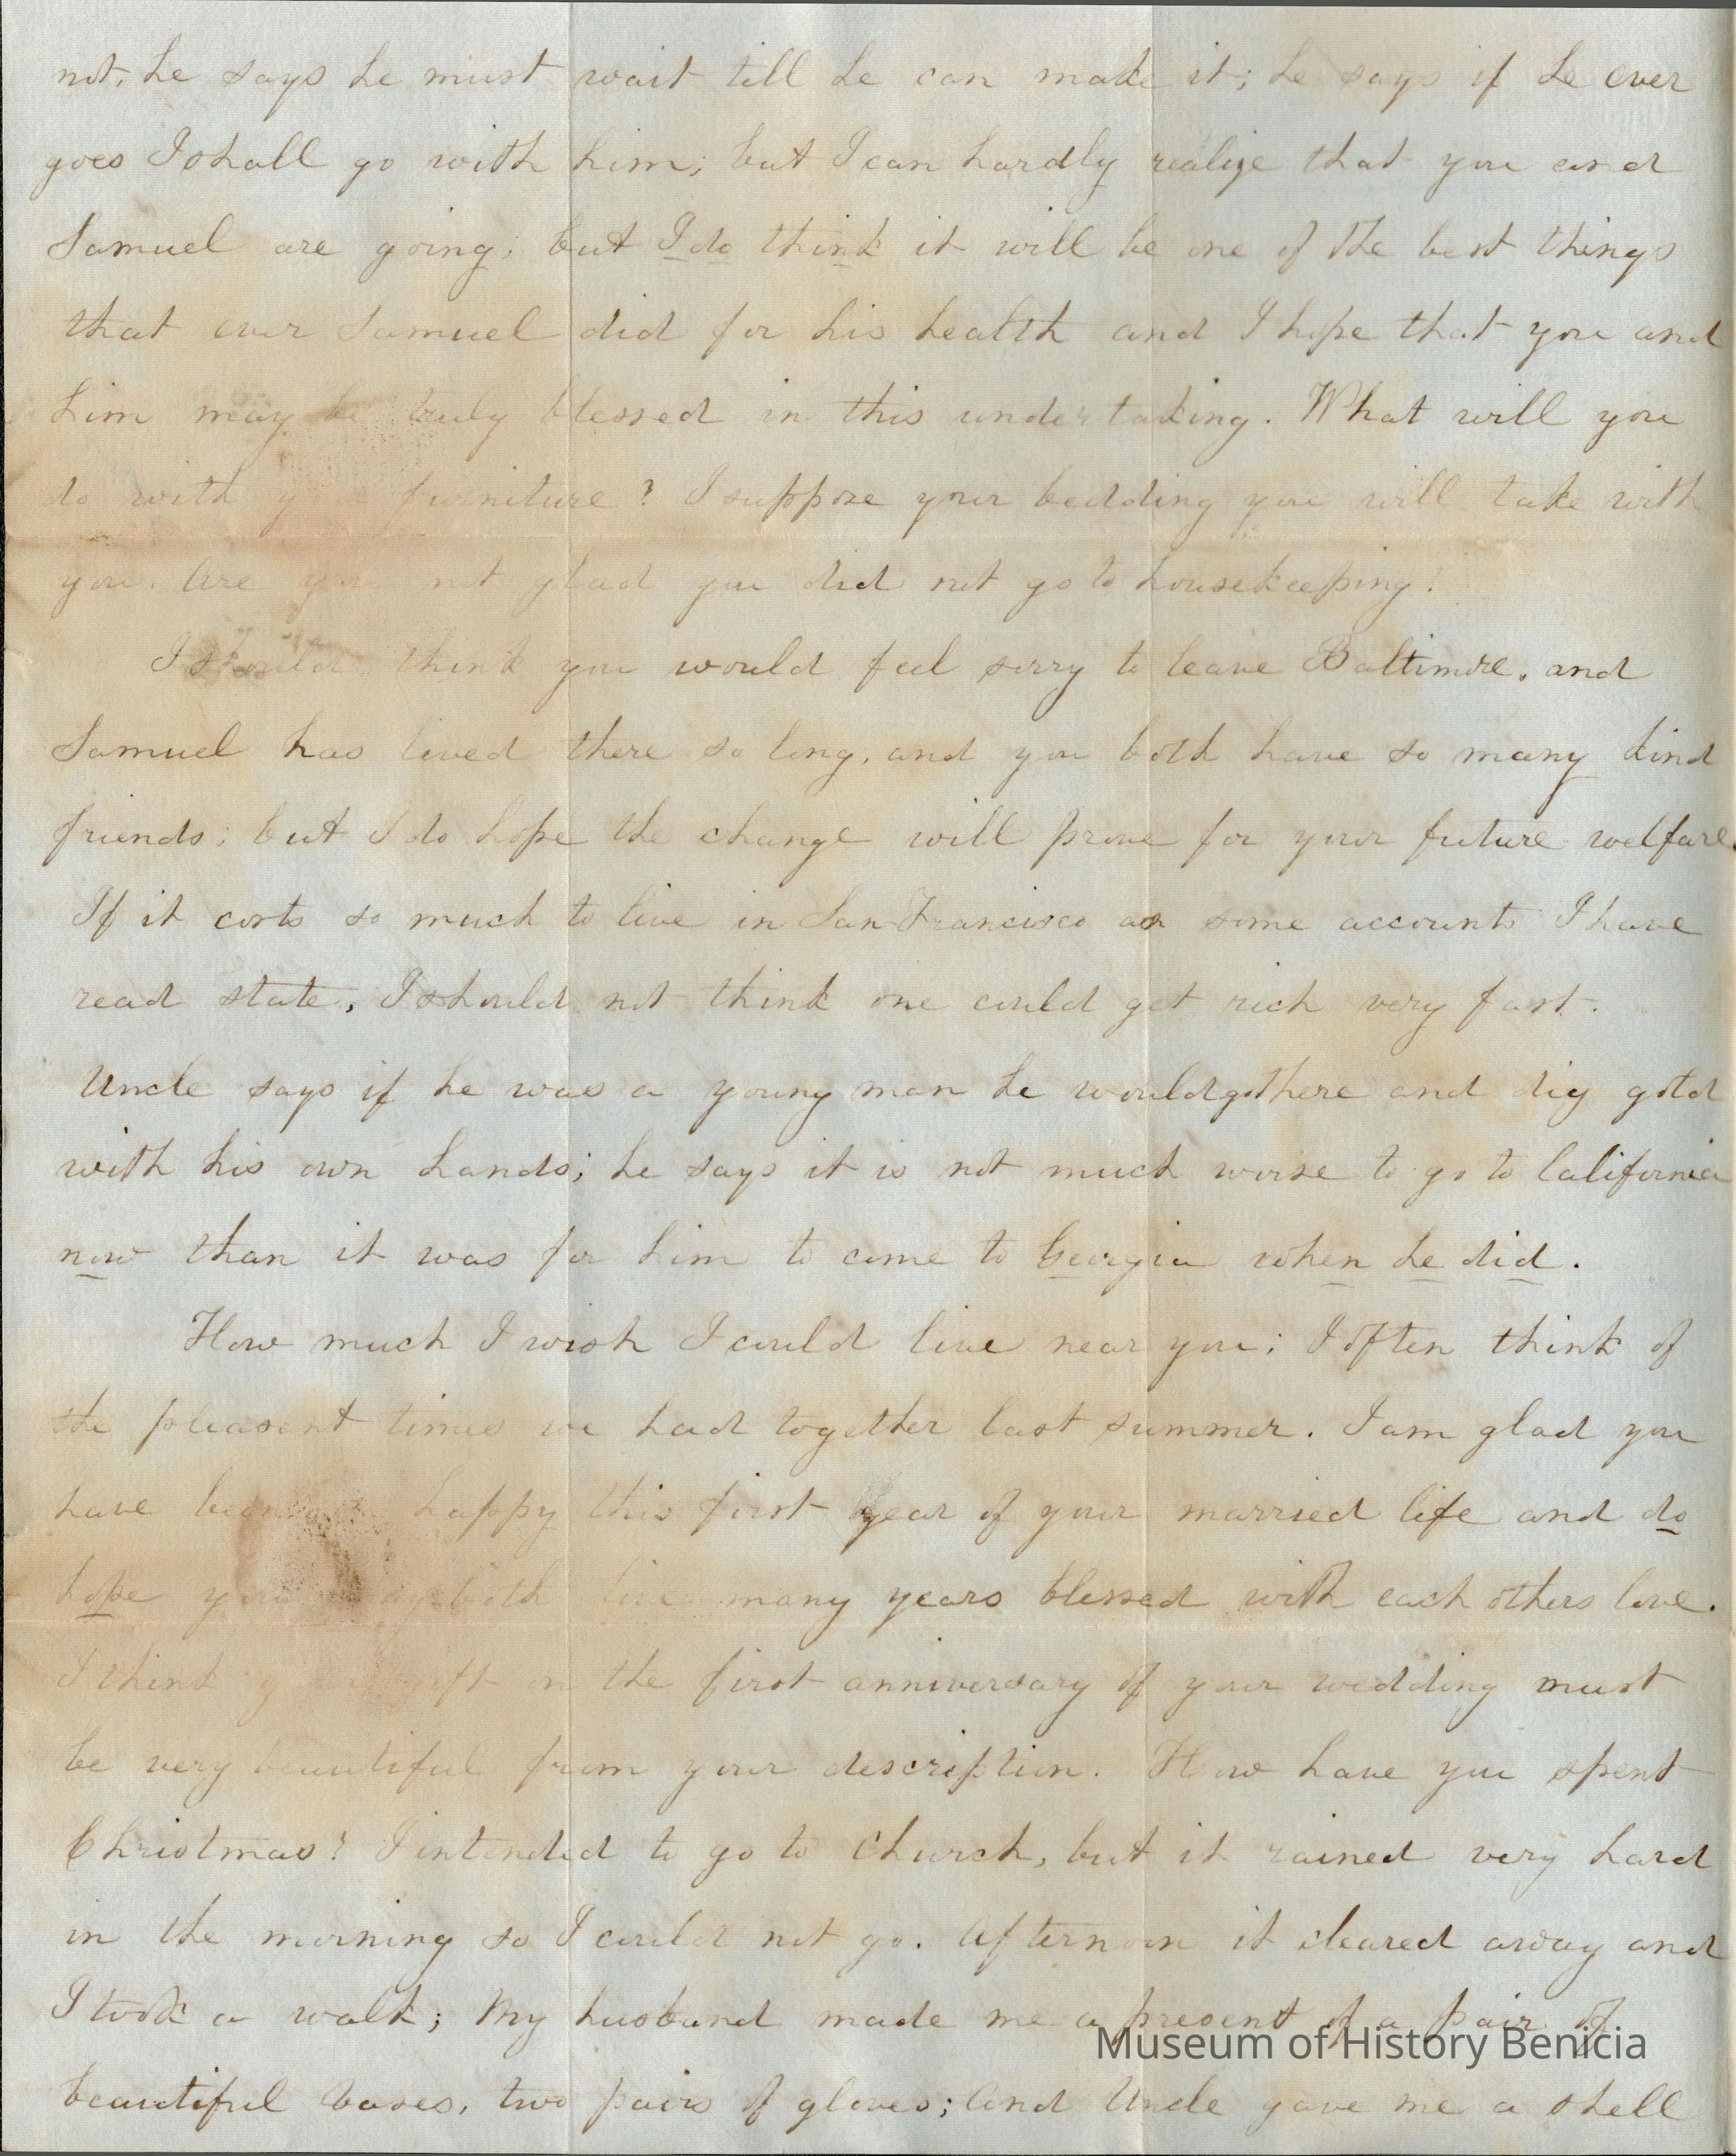 not, he says he must wait till he can make it; he says if he ever
goes I shall go with him; but I can hardly realize that you and
Samuel are going; but I do think it will be one of the best things
that ever Samuel did for his health and I hope that you and
him may be truly blessed in this undertaking. What will you
do with your furniture? I suppose your bedding you will take with
you. Are you not glad you did not go to housekeeping!
I should think you would feel sorry to leave Baltimore, and
Samuel has lived there so long, and you both have so many kind
friends; but I do hope the change will prove for your future welfare.
If it costs so much to live in San Francisco as some accounts I have
read state, I should not think one could get rich very fast.
Uncle says if he was a young man he would go there and dig gold
with his own hands; he says it is not much worse to go to California
now than it was for him to come to Georgia when he did.
How much I wish I could live near you; I often think of
the pleasant times we had together last summer. I am glad you
have been happy this first year of your married life and do
hope you may both live many years blessed with each others love.
I think your gift on the first anniversary of your wedding must
be very beautiful from your description. How have you spent
Christmas? I intended to go to church, but it rained very hard
in the morning so I could not go. Afternoon it cleared away and
I took a walk; My husband made me a present of a pair of
beautiful vases, two pairs of gloves; and Uncle gave me a shell
Museum of History Benicia